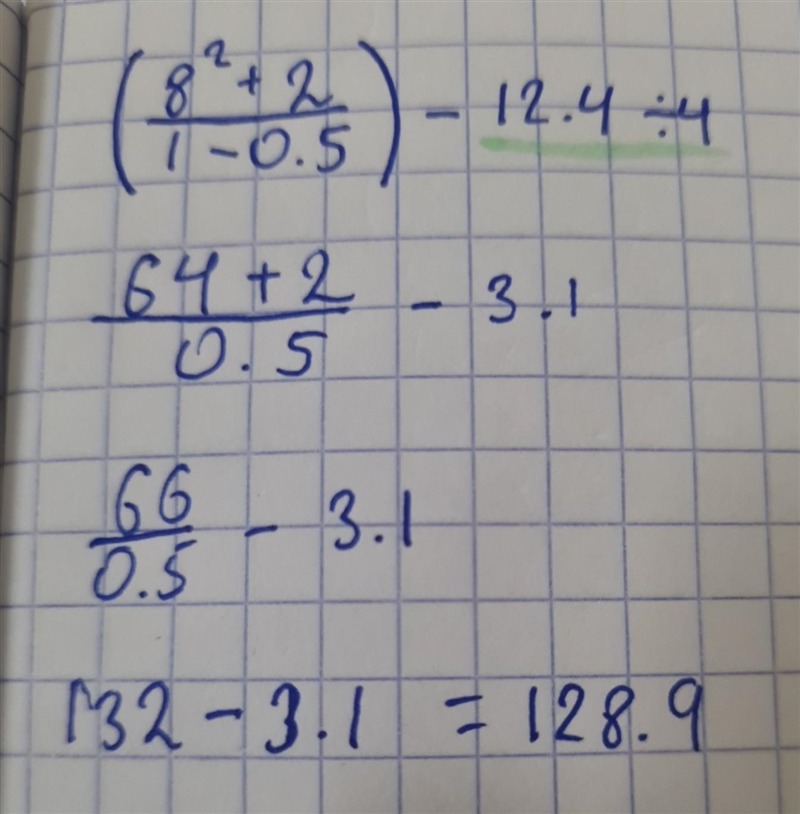 (8² + 2 / 1 - 0.5) - 12.4 ÷ 4
64 + 2 / 0.5 - 3.1
66 / 0.5 - 3.1
132 - 3.1 = 128.9